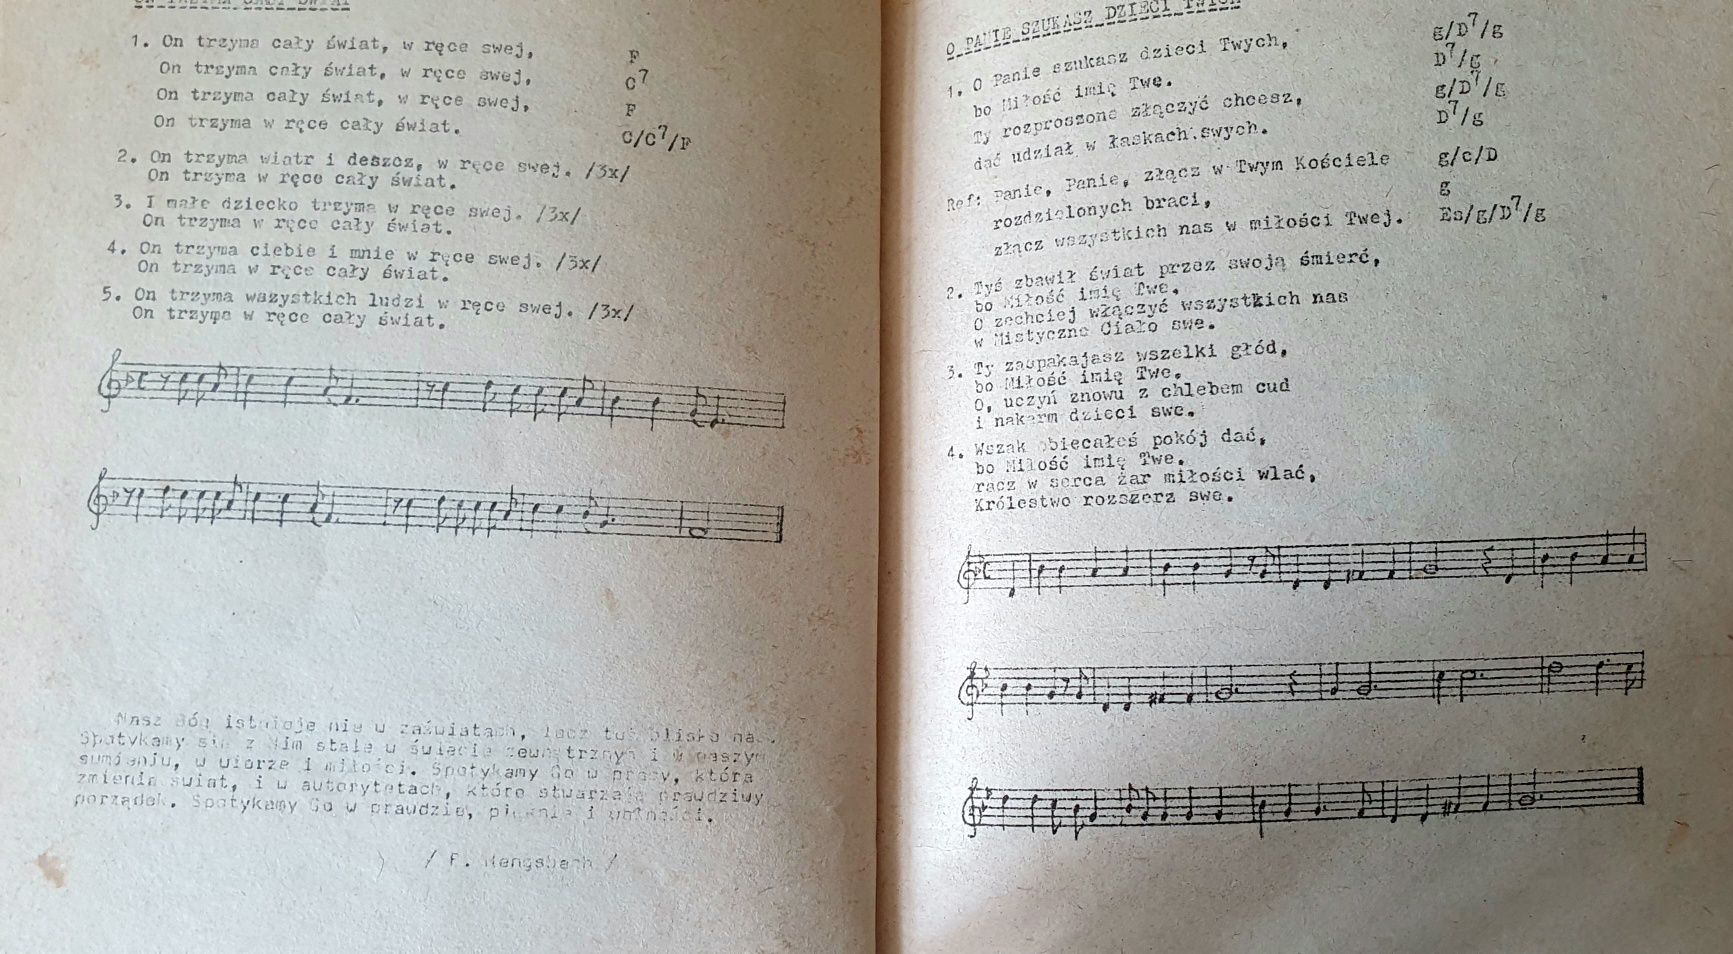 ON TRZYMA CAŁY ŚWIAT
1. On trzyma cały świat, w ręce swej, F
On trzyma cały świat, w ręce swej, C7
On trzyma cały świat, w ręce swej, F
On trzyma w ręce cały świat. C/C7/F
2. On trzyma wiatr i deszcz, w ręce swej. /3x/
On trzyma w ręce cały świat.
3. I małe dziecko trzyma w ręce swej. /3x/
On trzyma w ręce cały świat.
4. On trzyma ciebie i mnie w ręce swej. /3x/
On trzyma w ręce cały świat.
5. On trzyma wszystkich ludzi w ręce swej. /3x/
On trzyma w ręce cały świat.
Nasz Bóg istnieje nie w zaświatach, lecz tuż blisko nas.
Spotykamy się z Nim stale w świecie zewnętrznym i w naszym
sumieniu, w wierze i miłości. Spotykamy Go w pracy, która
zmienia świat, i w autorytetach, które stwarzają prawdziwy
porządek. Spotykamy Go w prawdzie, pięknie i wolności.
/ F. Hengsbach /
O PANIE SZUKASZ DZIECI TWICH
1. O Panie szukasz dzieci Twych, g/D7/g
bo Miłość imię Twe. D7/g
Ty rozproszone złączyć chcesz, g/D7/g
dać udział w łaskach swych. D7/g
Ref: Panie, Panie, złącz w Twym Kościele g/c/D
rozdzielonych braci, g
złącz wszystkich nas w miłości Twej. Es/g/D7/g
2. Tyś zbawił świat przez swoją śmierć,
bo Miłość imię Twe.
O zechciej włączyć wszystkich nas
w Mistyczne Ciało swe.
3. Ty zaspakajasz wszelki głód,
bo Miłość imię Twe.
O, uczyń znowu z chlebem cud
i nakarm dzieci swe.
4. Wszak obiecałeś pokój dać,
bo Miłość imię Twe.
racz w serca żar miłości wlać,
Królestwo rozszerz swe.